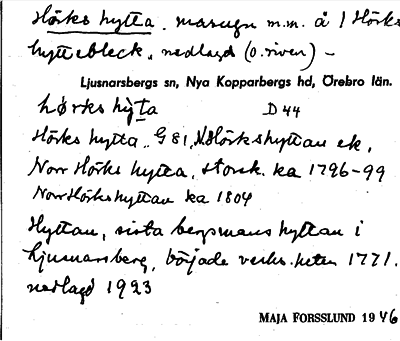 Hörks hytta. masugn m.m. å 1 Hörks
hyttebleck. nedlagd (o. riven) –
Ljusnarsbergs sn, Nya Kopparbergs hd, Örebro län.
hørks hỳta D 44
Hörks hytta. G 81, Hörkshyttan ek,
Norr Hörks hytta, storsk. ka 1796-99
NorrHörkshyttan ka 1804
Hyttan, sista bergsmanshyttan i
Ljusnarsberg, började verks.heten 1771.
nedlagd 1923
MAJA FORSSLUND 1946